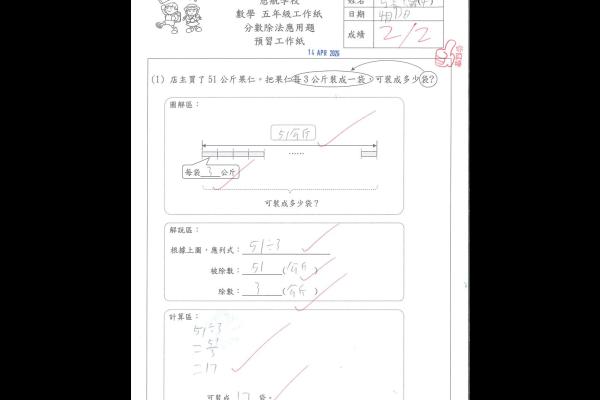 思航學校
數學 五年級工作紙
分數除法應用題
預習工作紙
姓名
日期 4月17日
成績 2/2
14 APR 2025
(1) 店主買了 51 公斤果仁。把果仁每 3 公斤裝成一袋，可裝成多少袋？
圖解區：
51公斤
......
每袋 3 公斤
可裝成多少袋？
解說區：
根據上圖，應列式： 51÷3
被除數： 51 (公斤)
除數： 3 (公斤)
計算區：
51÷3
= 51/3
= 17
可裝成 17 袋。